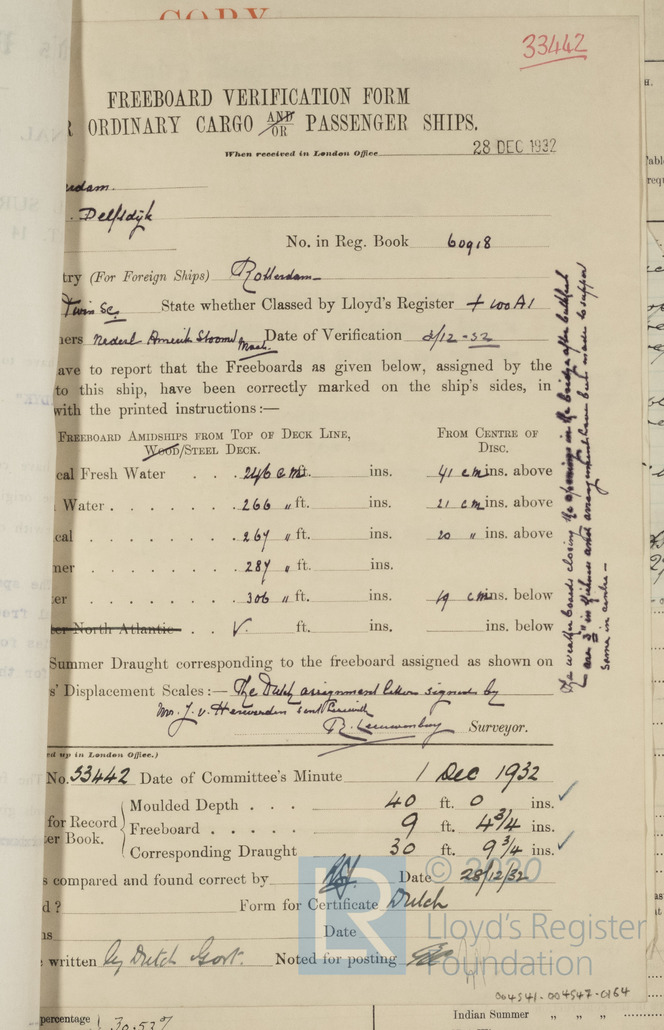 COPY
33442
FREEBOARD VERIFICATION FORM
R ORDINARY CARGO AND/OR PASSENGER SHIPS.
When received in London Office 28 DEC 1932
erdam.
. Delftdyk
No. in Reg. Book 60918
try (For Foreign Ships) Rotterdam
Twin Sc. State whether Classed by Lloyd's Register + 100 A1
ners Nederl Amerik Stoomv Maats. Date of Verification 2/12 -32
ave to report that the Freeboards as given below, assigned by the
to this ship, have been correctly marked on the ship's sides, in
with the printed instructions:—
FREEBOARD AMIDSHIPS FROM TOP OF DECK LINE, FROM CENTRE OF
WOOD/STEEL DECK. DISC.
cal Fresh Water . . . 246 cm ft. ins. 41 cm ins. above
Water . . . . . . . 266 " ft. ins. 21 cm ins. above
cal . . . . . . . 267 " ft. ins. 20 " ins. above
mer . . . . . . . 287 " ft. ins.
er . . . . . . . 306 " ft. ins. 19 cm ins. below
ter North Atlantic . . ✓. ft. ins. ins. below
Summer Draught corresponding to the freeboard assigned as shown on
s' Displacement Scales:— The Dutch assignment letter signed by
Mr. J. v. Herwerden sent herewith
Surveyor.
The weather boards closing the openings in the bridge after bulkhead
are 3" in thickness and arrangement have been made to support
same in centre -
ed up in London Office.)
No. 33442 Date of Committee's Minute 1 Dec 1932
for Record
er Book.
Moulded Depth . . . 40 ft. 0 ins. ✓
Freeboard . . . . . 9 ft. 4 3/4 ins.
Corresponding Draught 30 ft. 9 3/4 ins. ✓
s compared and found correct by Date 28/12/32
d? Form for Certificate Dutch
ns Date
written by Dutch Govt. Noted for posting
© 2020
LR
Lloyd's Register
Foundation
004541-004547-0164
percentage 30.53%
Indian Summer " " "